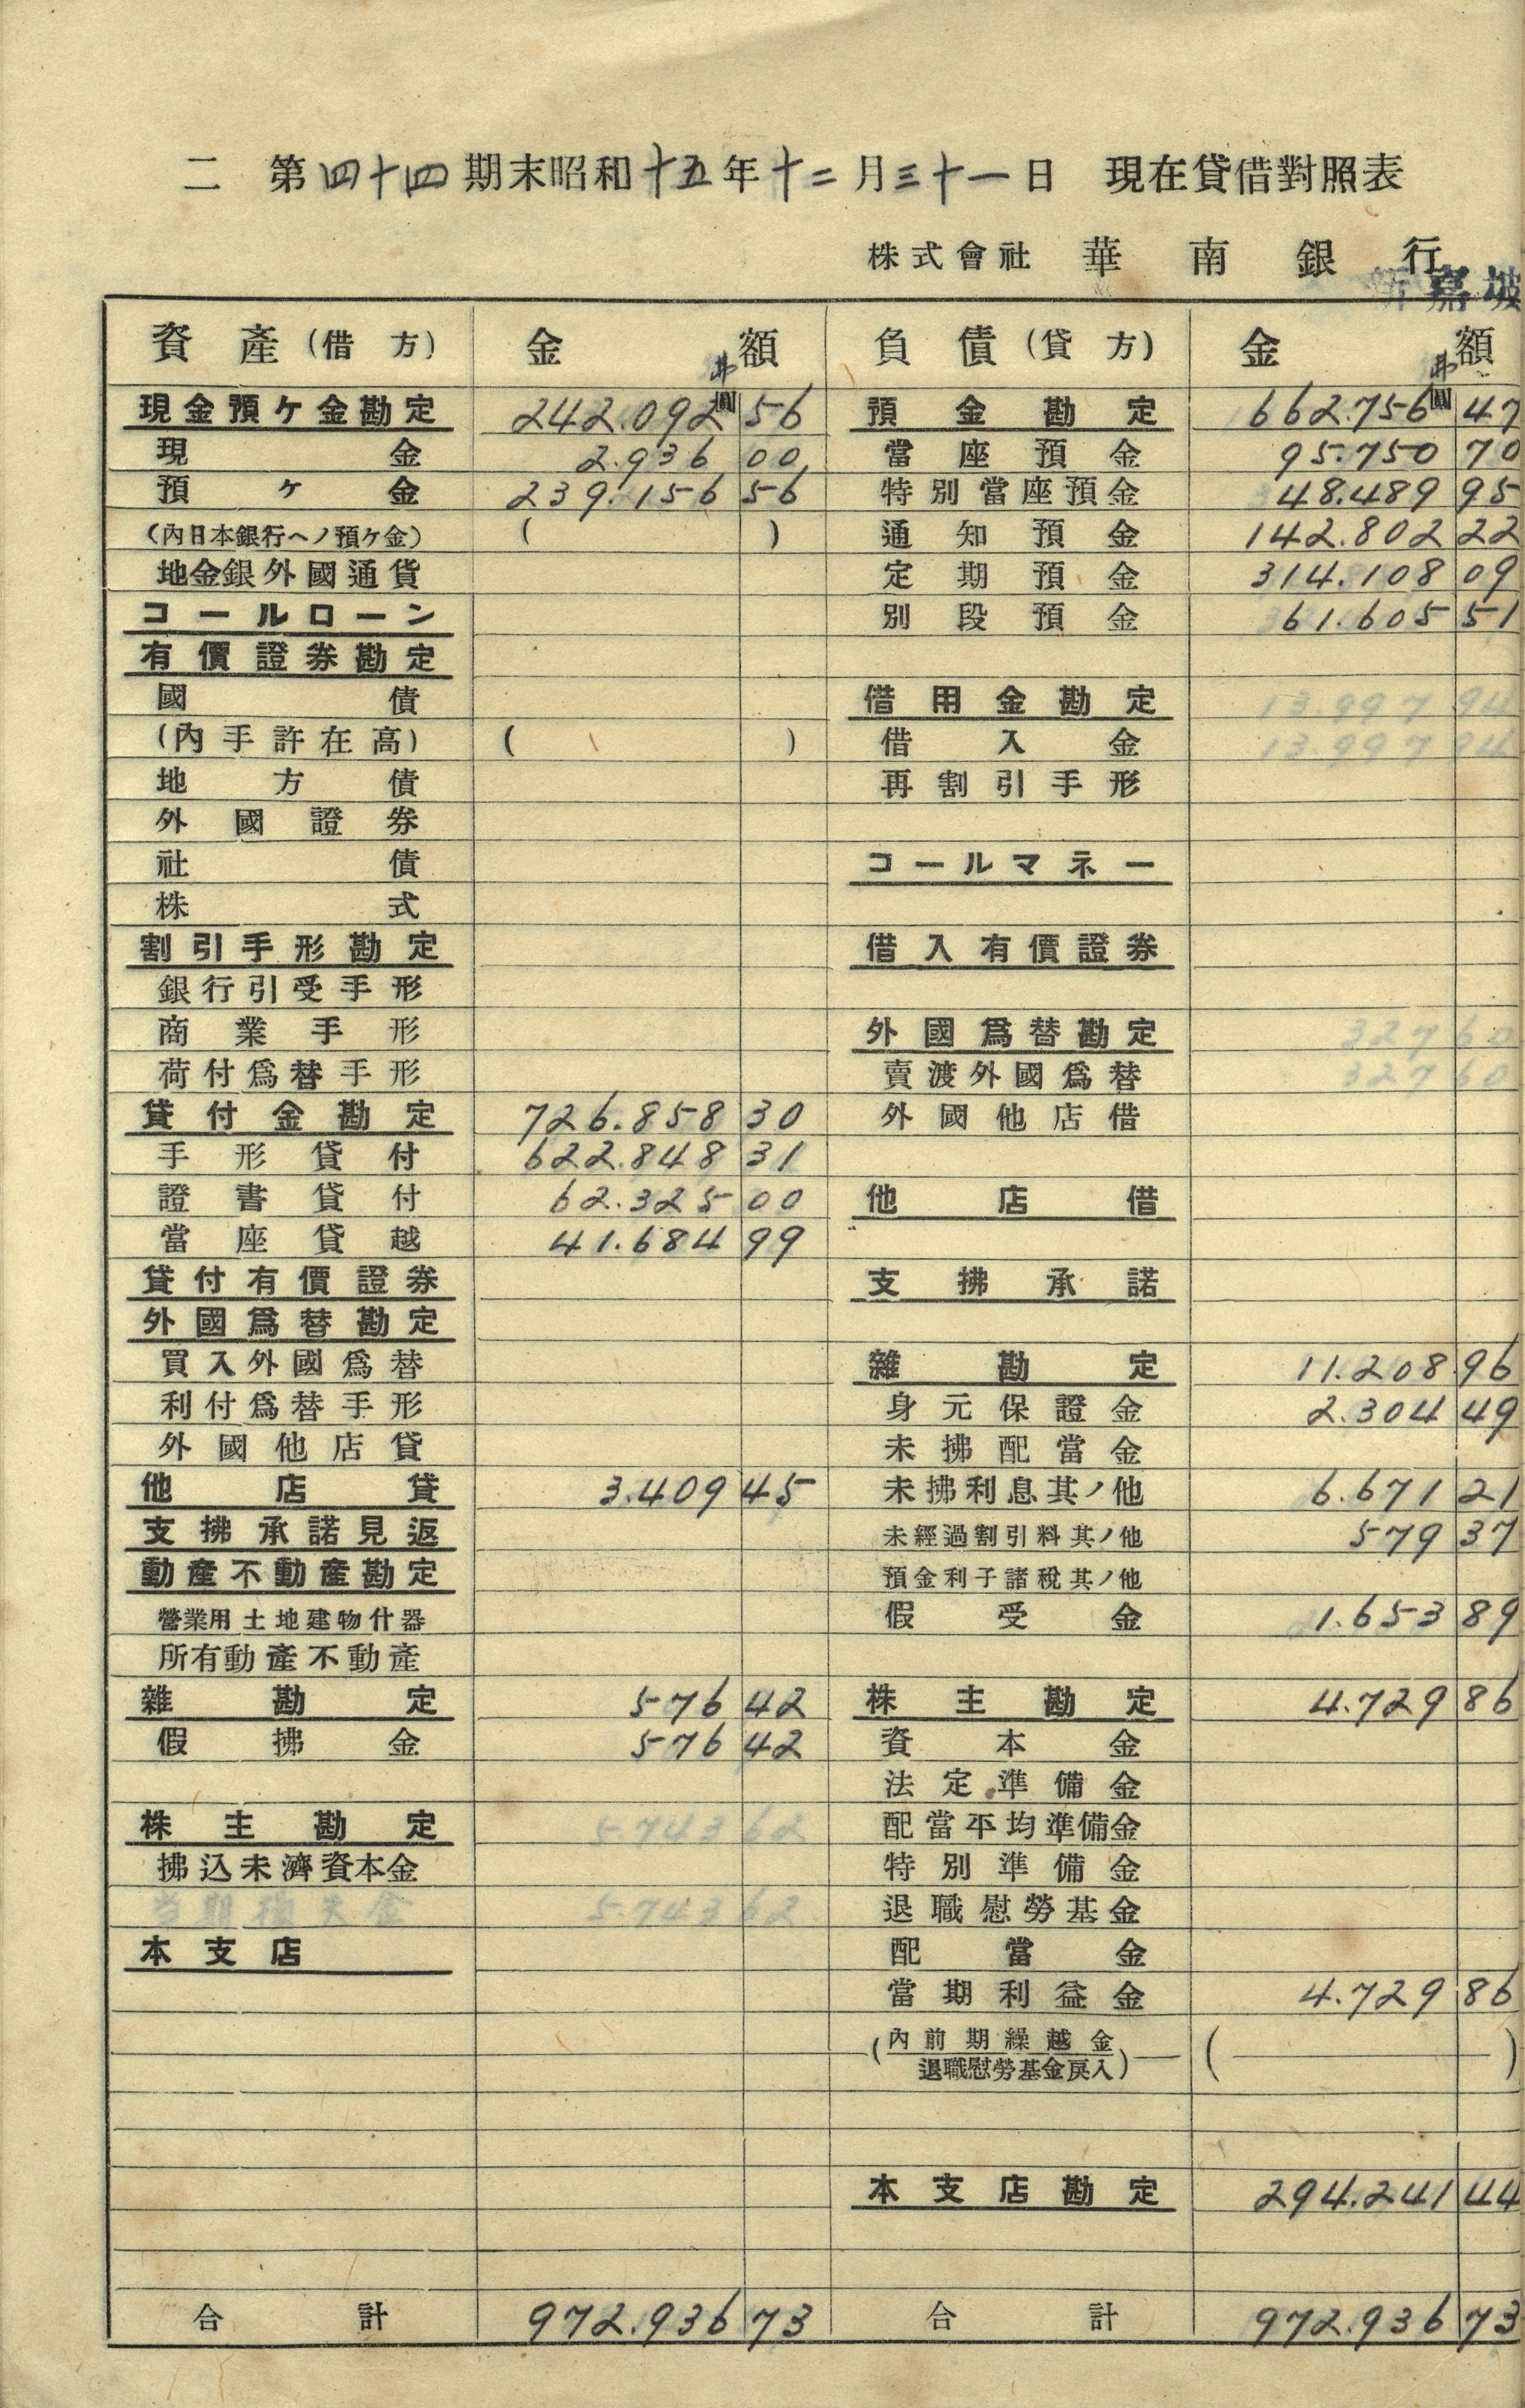 二 第四十四期末昭和十五年十二月三十一日 現在貸借對照表
株式會社 華南銀行
新嘉坡
資產(借方) 金額 負債(貸方) 金額
弗 弗
圓 圓
現金預ケ金勘定 242.092 56 預金勘定 662.756 47
現金 2.936 00 當座預金 95.750 70
預ケ金 239.156 56 特別當座預金 48.489 95
(內日本銀行ヘノ預ケ金) ( ) 通知預金 142.802 22
地金銀外國通貨 定期預金 314.108 09
コールローン 別段預金 61.605 51
有價證券勘定
國債 借用金勘定 13.997 94
(內手許在高) ( ) 借入金 13.997 94
地方債 再割引手形
外國證券
社債 コールマネー
株式
割引手形勘定 借入有價證券
銀行引受手形
商業手形 外國爲替勘定 327 60
荷付爲替手形 賣渡外國爲替 327 60
貸付金勘定 726.858 30 外國他店借
手形貸付 622.848 31
證書貸付 62.325 00 他店借
當座貸越 41.684 99
貸付有價證券 支拂承諾
外國爲替勘定
買入外國爲替 雜勘定 11.208 96
利付爲替手形 身元保證金 2.304 49
外國他店貸 未拂配當金
他店貸 3.409 45 未拂利息其ノ他 6.671 21
支拂承諾見返 未經過割引料其ノ他 579 37
動產不動產勘定 預金利子諸稅其ノ他
營業用土地建物什器 假受金 1.653 89
所有動產不動產
雜勘定 576 42 株主勘定 4.729 86
假拂金 576 42 資本金
法定準備金
株主勘定 5.743 62 配當平均準備金
拂込未濟資本金 特別準備金
当期損失金 5.743 62 退職慰勞基金
本支店 配當金
當期利益金 4.729 86
(內前期繰越金 ( )
退職慰勞基金戾入)
本支店勘定 294.241 44
合計 972.936 73 合計 972.936 73